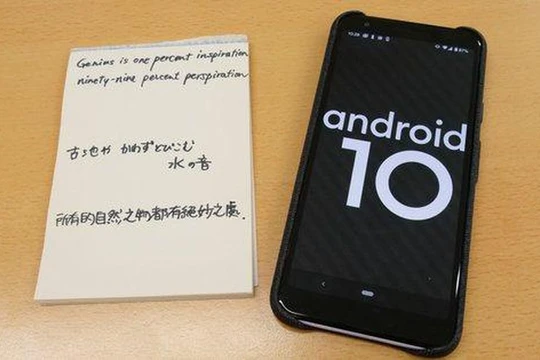 Genius is one percent inspiration
ninety-nine percent perspiration
古池や かわずとびこむ
水の音
所有的自然之物都有絕妙之處.
10:26
android
10